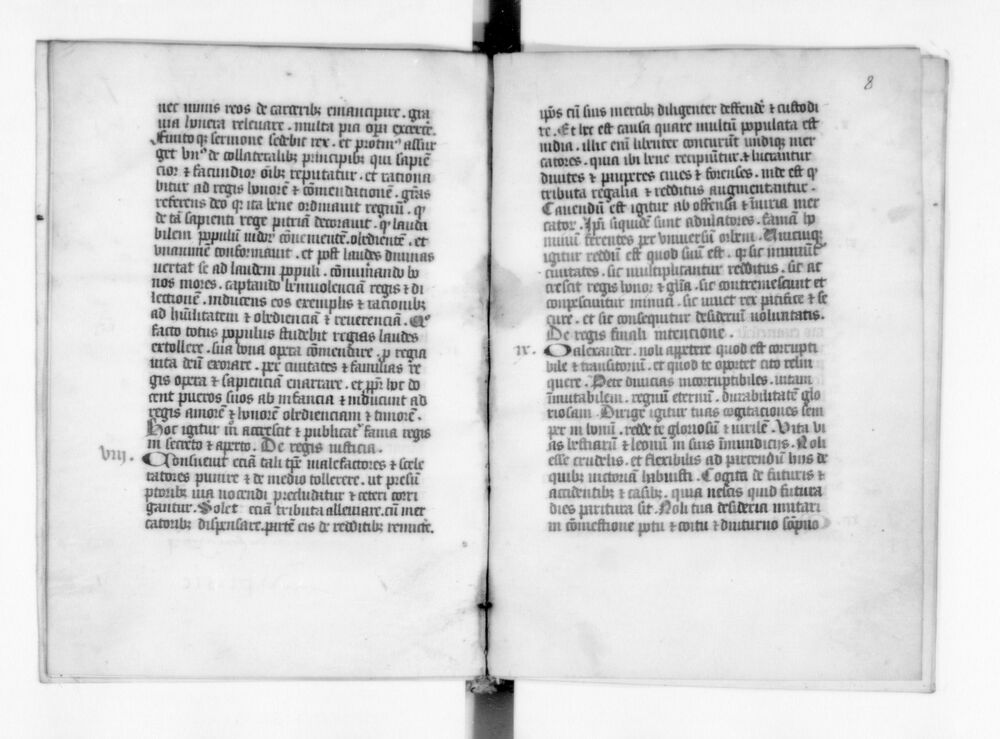 nec minus reos de carceribꝫ emancipare . gra
uia honera releuare . multa pia opa excerce͞
Finito qꝫ sermone sedebit rex . et protinꝰ assur
get vnꝰ de collateralibꝫ principibꝫ qui sapie͞
cior ⁊ facundior o͞ibꝫ reputatur . et raciona
bitur ad regis honore͞ ⁊ co͞mendacione͞ . gra͞s
referens deo qꝛ ita bene ordinauit regnu͞ . qꝛ
de ta͞ sapienti rege pat͞am decorauit . qꝛ lauda
bilem populu͞ co͞uenientem . obediente͞ . et
vnanime͞ conformauit . et post laudes diuinas
uertat se ad laudem populi . co͞mina͞do bo
nos mores . captando beniuolencia͞ regis ⁊ di
lectione͞ . inducens eos exemplis ⁊ racionibꝫ
ad humilitatem ⁊ obediencia͞ ⁊ reuerencia͞ . Qo
facto totus populus studebit regias laudes
extollere . sua bona opera co͞mendare . p regia
uita deu͞ exorare . per ciuitates ⁊ familias re
gis opera ⁊ sapiencia͞ enarrare . et p͞p͞ hoc do
cent pueros suos ab infancia ⁊ inducunt ad
regis amore͞ ⁊ honore͞ obedienciam ⁊ timore͞ .
Hoc igitur m͞ accrescit ⁊ publicatꝰ fama regis
in secreto ⁊ aperto . De regis iusticia .
viij . Consueuit ecia͞ tali tp͞e malefactores ⁊ scele
ratores punire ⁊ de medio tollerere . ut presu͞
ptoribꝫ uia nocendi precludatur ⁊ ceteri corri
gantur . Solet ecia͞ tributa alleuiare . cu͞ mer
catoribꝫ dispensare . parte͞ eis de redditibꝫ remitte͞ .
8
ip͞os cu͞ suis mercibꝫ diligenter deffende͞ ⁊ custodi
re . Et hec est causa quare multu͞ populata est
india . illic eni͞ libenter concurru͞t undiqꝫ mer
catores . quia ibi bene recipiu͞tur . ⁊ lucrantur
diuites ⁊ pauperes ciues ⁊ forenses . inde est qꝰ
tributa regalia ⁊ redditus augmentantur .
Cauendu͞ est igitur ab offensa ⁊ iniuria mer
cator . Ip͞i siquide͞ sunt adulatores . fama͞ ho
minu͞ ferentes per vniuersu͞ orbem . Vnicuiqꝫ
igitur reddu͞ est quod suu͞ est . qꝛ sic muniu͞t͞
ciuitates . sic multiplicantur redditus . sic ac
crescit regis honor ⁊ gl͞ia . sic contremescunt et
conpescuntur inimici . sic uiuet rex pacifice ⁊ se
cure . et sic consequitur desideriu͞ uoluntatis .
De regis finali intencione .
ix . O alexander . noli appetere quod est corrupti
bile ⁊ transitoriu͞ . et quod te oportet cito relin
quere . Pete diuicias incorruptibiles . uitam
i͞mutabilem . regnu͞ eternu͞ . durabilitate͞ glo
riosam . Dirige igitur tuas cogitaciones sem
per in bonu͞ . redde te gloriosu͞ ⁊ uirile͞ . Vita vi
as bestiaru͞ ⁊ leonu͞ in suis i͞mundicijs . Noli
esse crudelis . et flexibilis ad parcendu͞ hijs de
quibꝫ uictoria͞ habuisti . Cogita de futuris ⁊
accidentibꝫ ⁊ casibꝫ . quia nescis quid futura
dies paritura sit . Noli tua desideria imitari
in co͞mestione potu ⁊ coitu ⁊ diuturno so͞pno